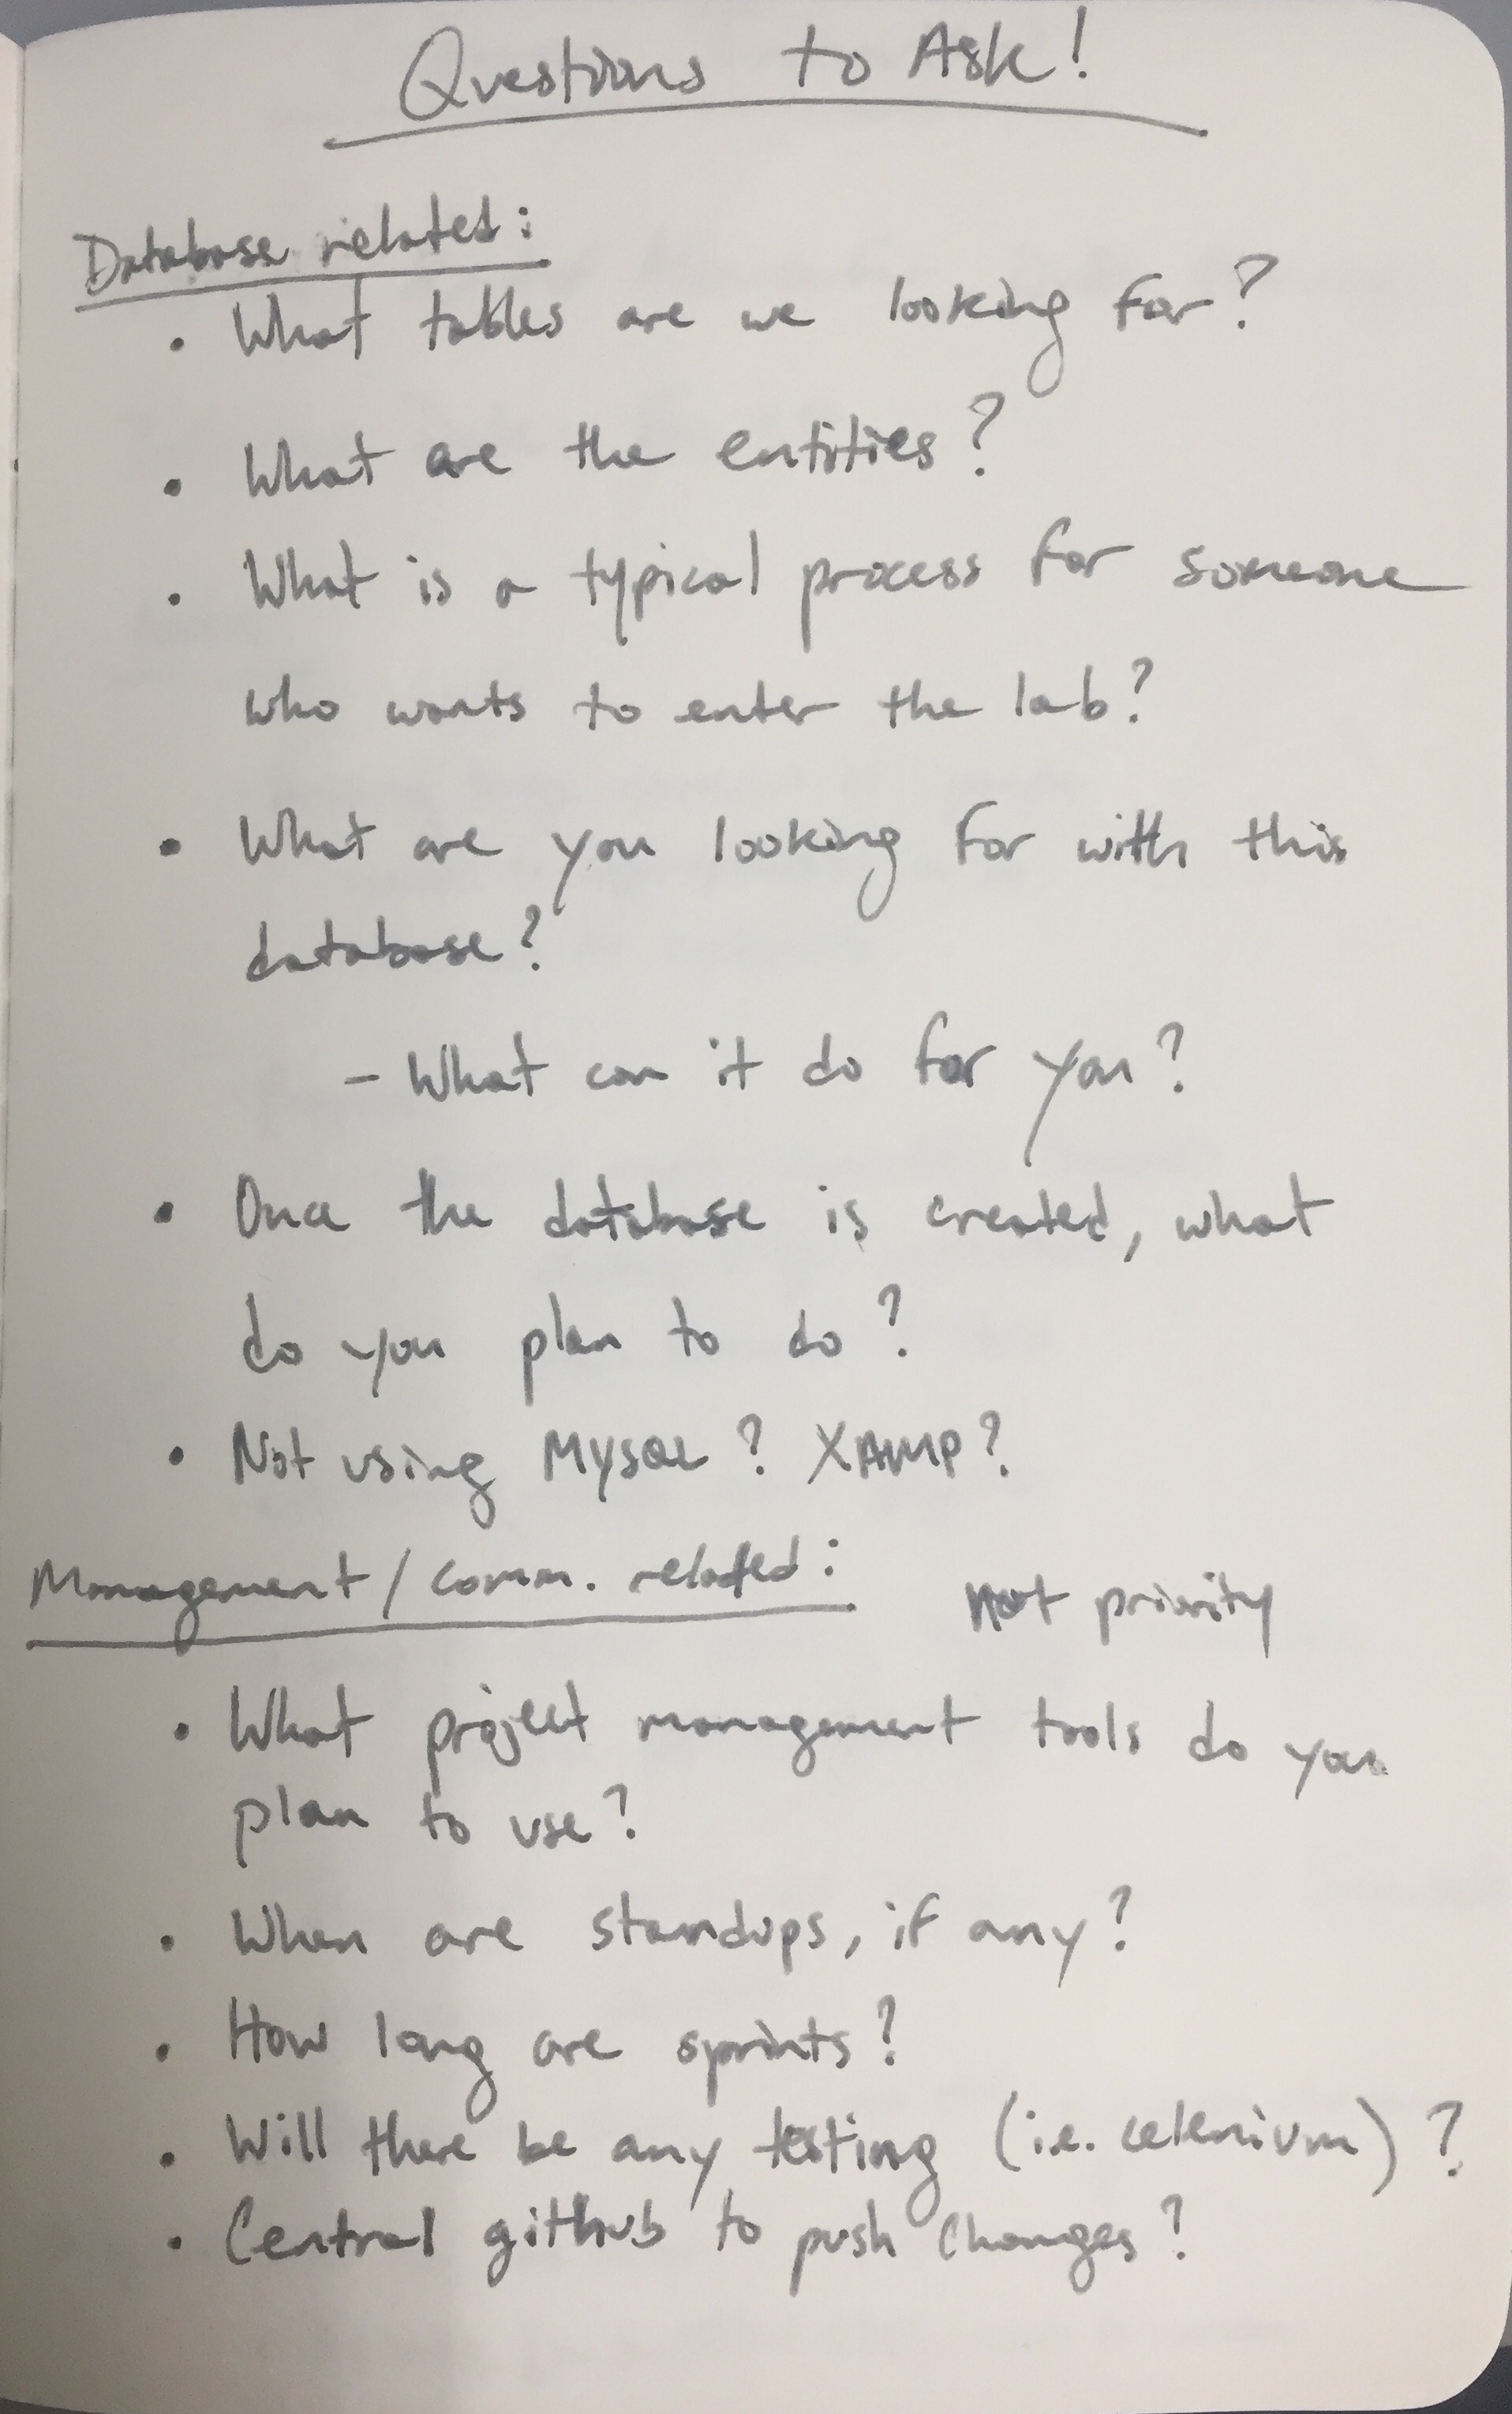 Questions to Ask!
Database related:
• What tables are we looking for?
• What are the entities?
• What is a typical process for someone
who wants to enter the lab?
• What are you looking for with this
database?
- What can it do for you?
• Once the database is created, what
do you plan to do?
• Not using MySQL? XAMP?
Management/comm. related: not priority
• What project management tools do you
plan to use?
• When are standups, if any?
• How long are sprints?
• Will there be any testing (i.e. celenium)?
• Central github to push changes?